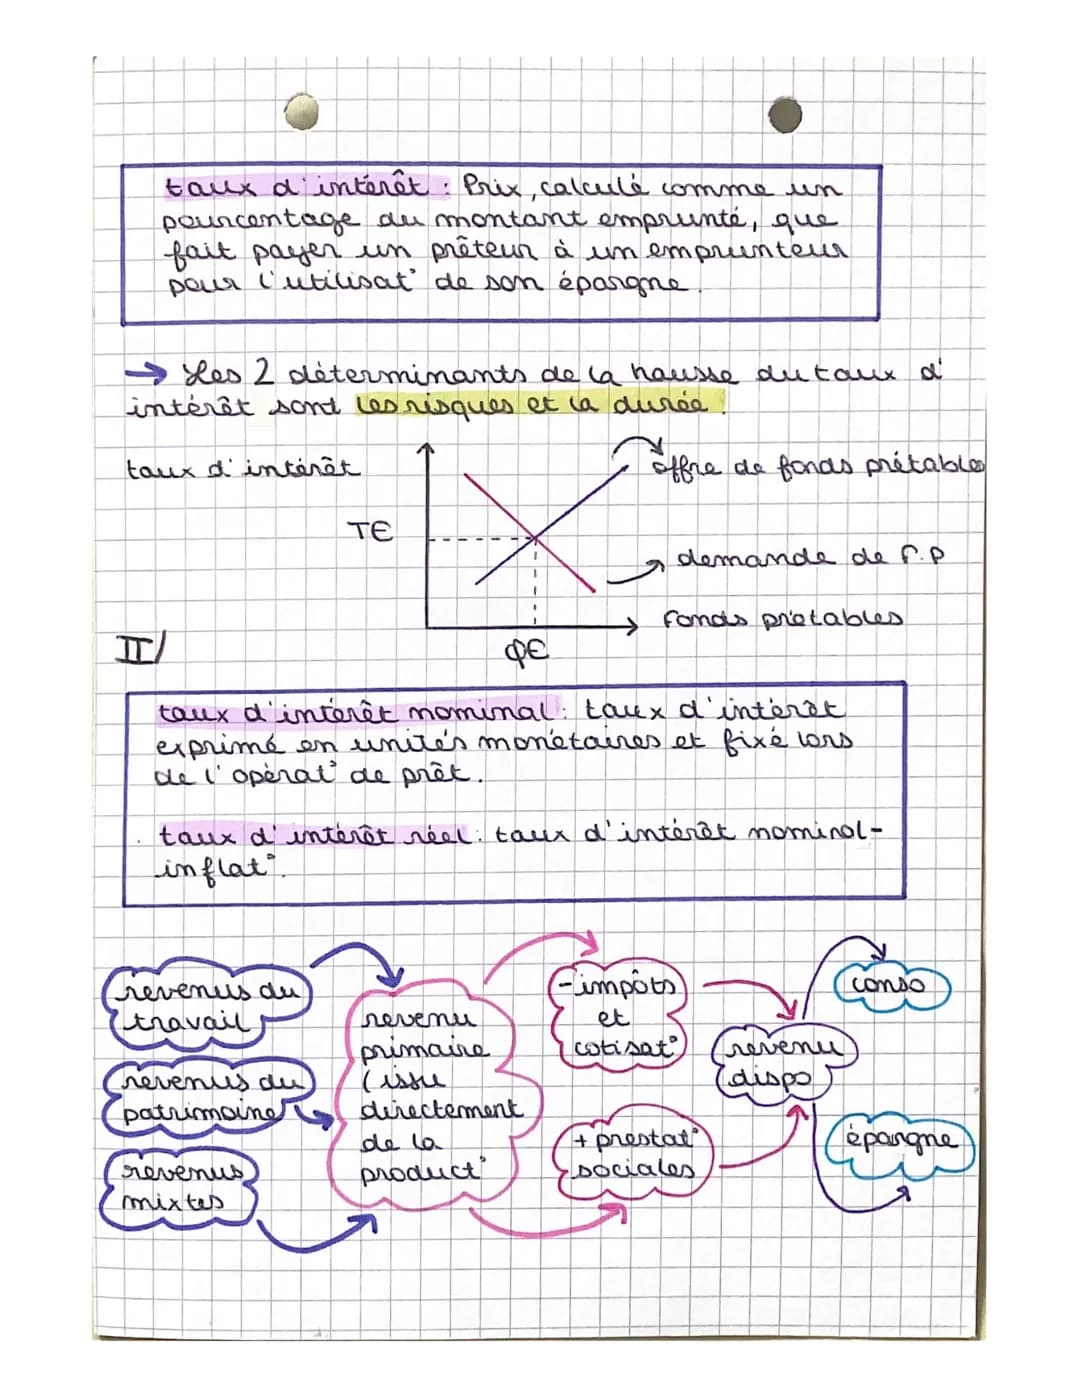 taux d'intérêt : Prix, calculé comme un
pourcentage du montant emprunté, que
fait payer un prêteur à un emprunteur
pour l'utilisat° de son épargne.
→ Les 2 déterminants de la hausse du taux d'
intérêt sont les risques et la durée.
taux d'intérêt
offre de fonds prétables
T€
demande de F.P
Fonds prétables
Q€
II/
taux d'intérêt nominal : taux d'intérêt
exprimé en unités monétaires et fixé lors
de l'opérat° de prêt.
taux d'intérêt réel : taux d'intérêt nominal -
inflat°.
revenus du
travail
revenus du
patrimoine
revenus
mixtes
revenu
primaire
(issu
directement
de la
product°
- impôts
et
cotisat°
+ prestat°
sociales
revenu
dispo
conso
épargne